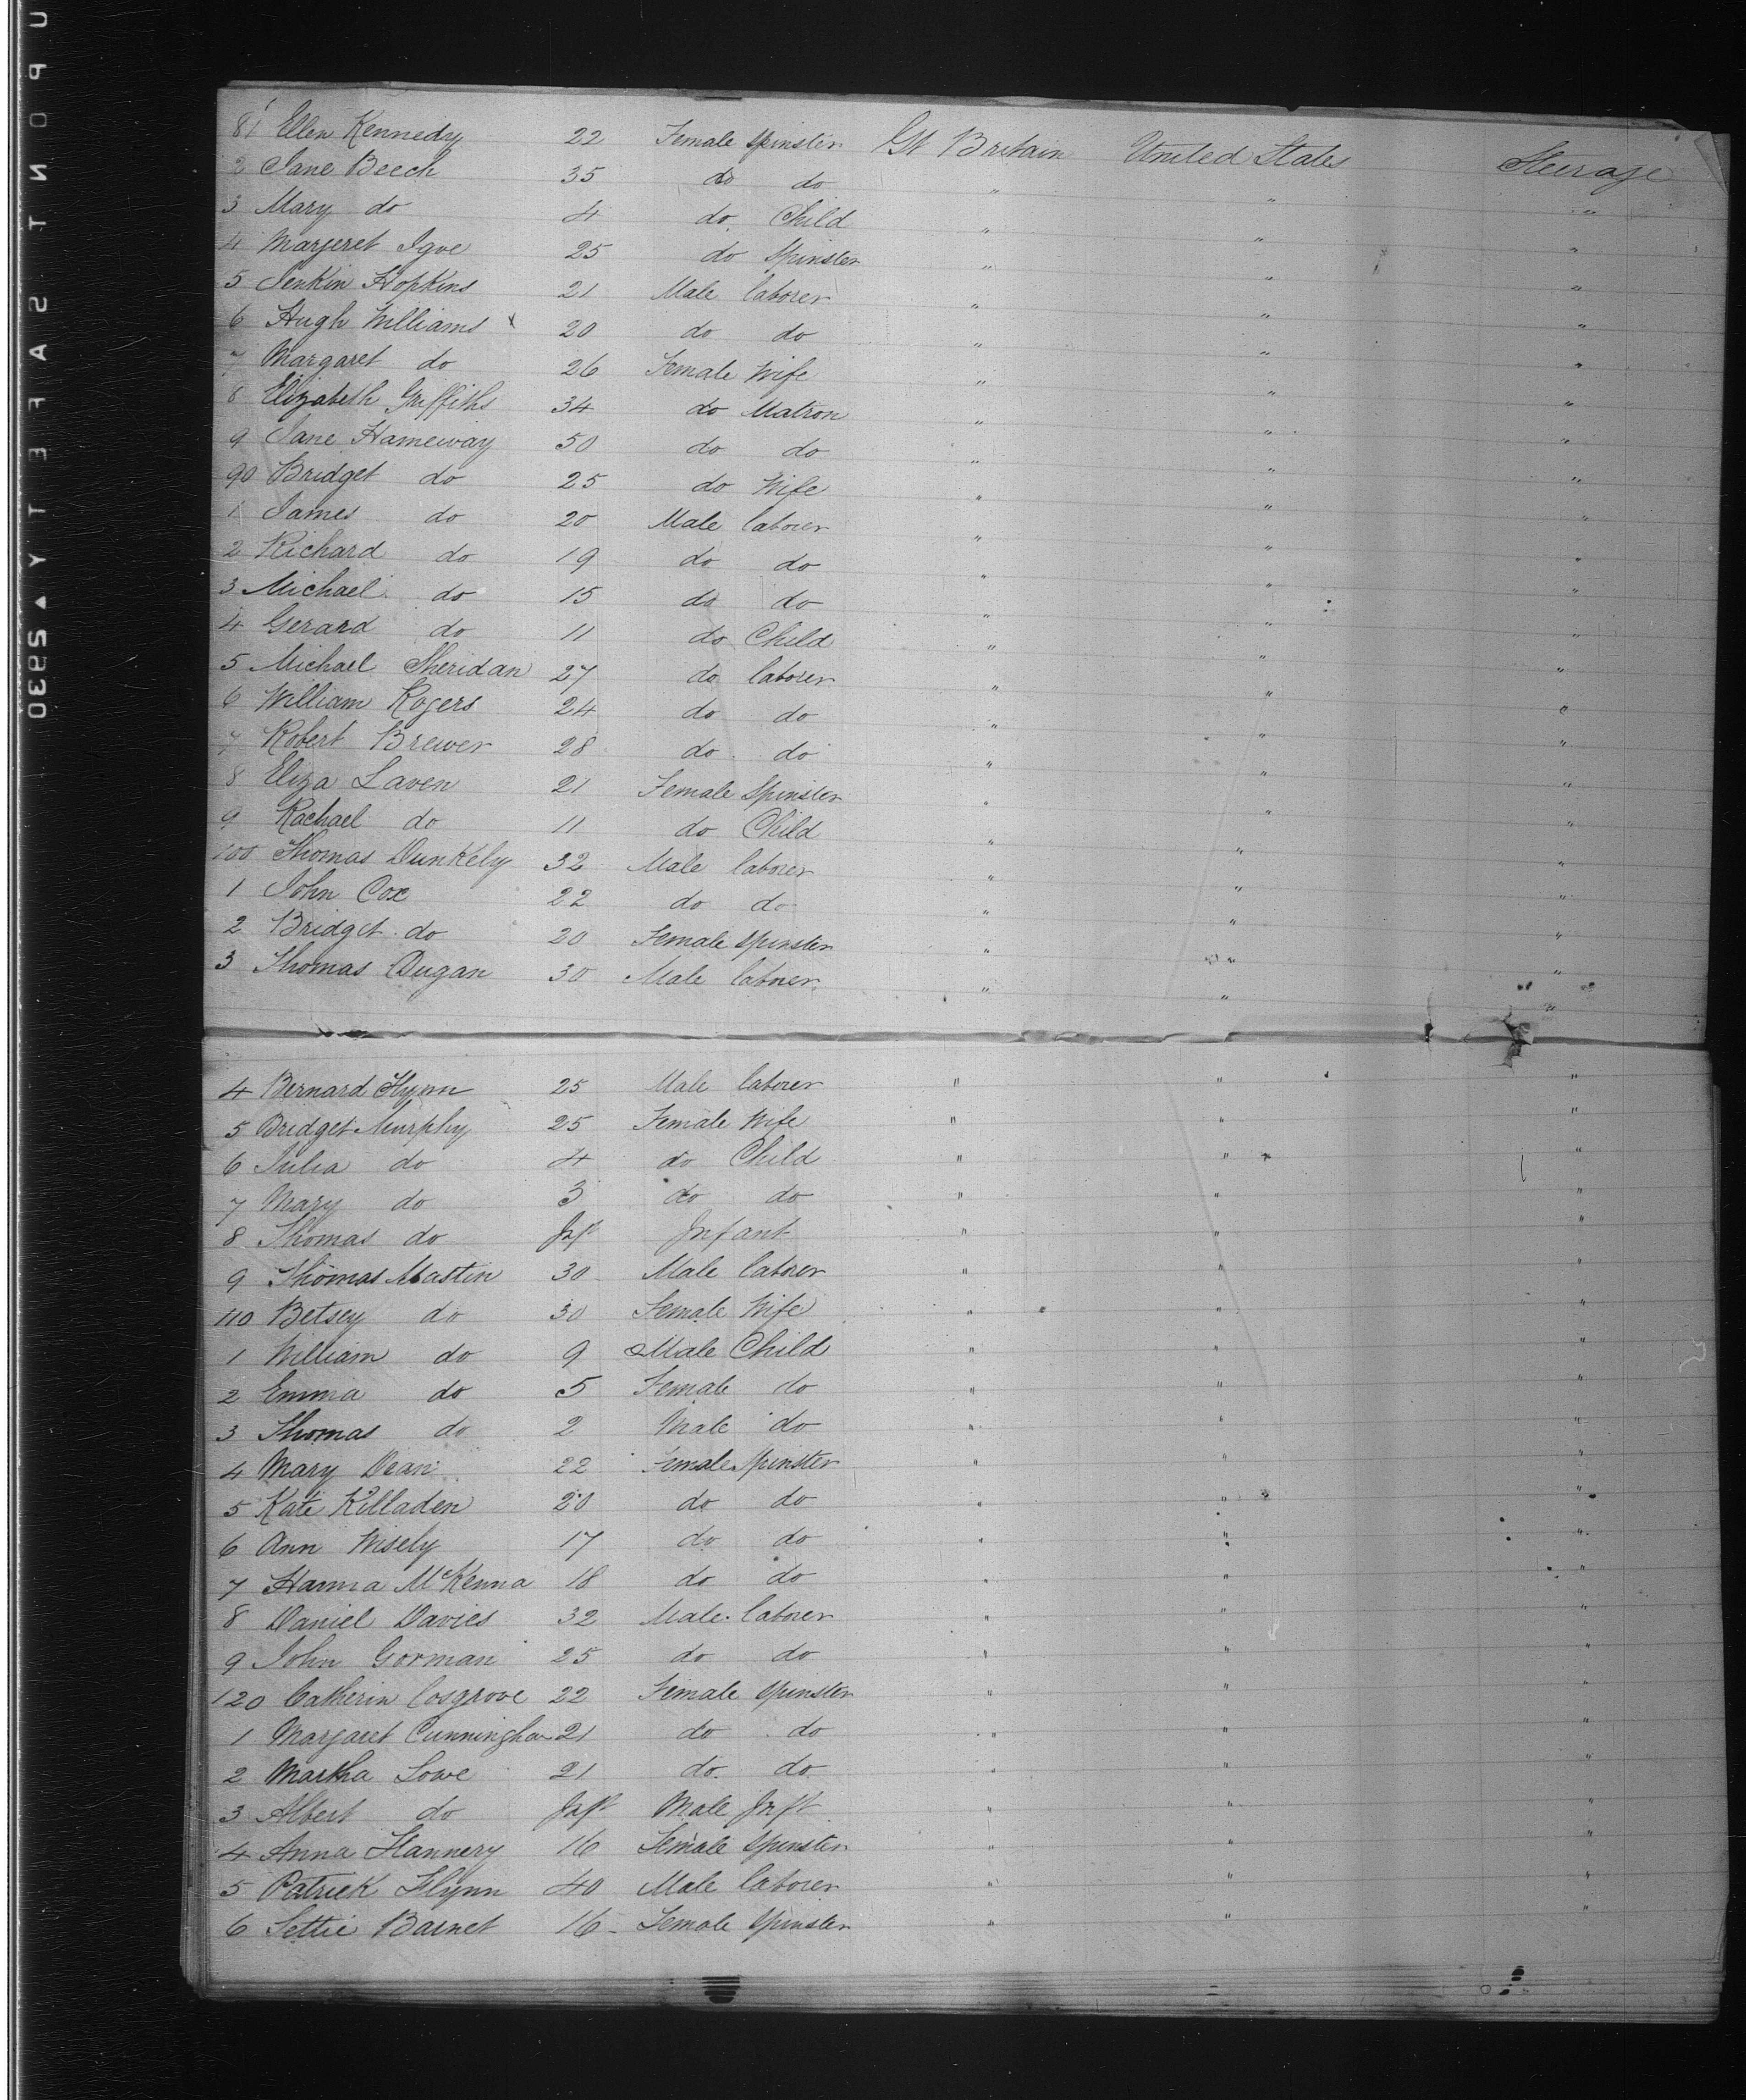 81 Ellen Kennedy 22 Female Spinster Gt Britain United States Steerage
2 Jane Beech 35 do do " " "
3 Mary do 4 do Child " " "
4 Margeret Igoe 25 do Spinster " " "
5 Jenkin Hopkins 21 Male laborer " " "
6 Hugh Williams x 20 do do " " "
7 Margaret do 26 Female Wife " " "
8 Elizabeth Griffiths 34 do Matron " " "
9 Jane Hameway 50 do do " " "
90 Bridget do 25 do Wife " " "
1 James do 20 Male laborer " " "
2 Richard do 19 do do " " "
3 Michael do 15 do do " " "
4 Gerard do 11 do Child " " "
5 Michael Sheridan 27 do laborer " " "
6 William Rogers 24 do do " " "
7 Robert Brewer 28 do do " " "
8 Eliza Laven 21 Female Spinster " " "
9 Rachael do 11 do Child " " "
100 Thomas Dunkely 32 Male laborer " " "
1 John Cox 22 do do " " "
2 Bridget do 20 Female Spinster " " "
3 Thomas Dugan 30 Male laborer " " "
4 Bernard Flynn 25 Male laborer " " "
5 Bridget Murphy 25 Female Wife " " "
6 Julia do 4 do Child " " "
7 Mary do 3 do do " " "
8 Thomas do Inft Infant " " "
9 Thomas Mastin 30 Male laborer " " "
110 Betsey do 30 Female Wife " " "
1 William do 9 Male Child " " "
2 Emma do 5 Female do " " "
3 Thomas do 2 Male do " " "
4 Mary Dean 22 Female Spinster " " "
5 Kate Killaden 20 do do " " "
6 Ann Wisely 17 do do " " "
7 Hanna McKenna 18 do do " " "
8 Daniel Davies 32 Male laborer " " "
9 John Gorman 25 do do " " "
120 Catherin Cosgrove 22 Female Spinster " " "
1 Margaret Cunningham 21 do do " " "
2 Martha Lowe 21 do do " " "
3 Albert do Inft Male Inft " " "
4 Anna Flannery 16 Female Spinster " " "
5 Patrick Flynn 40 Male laborer " " "
6 Lettie Barnet 16 Female Spinster " " "